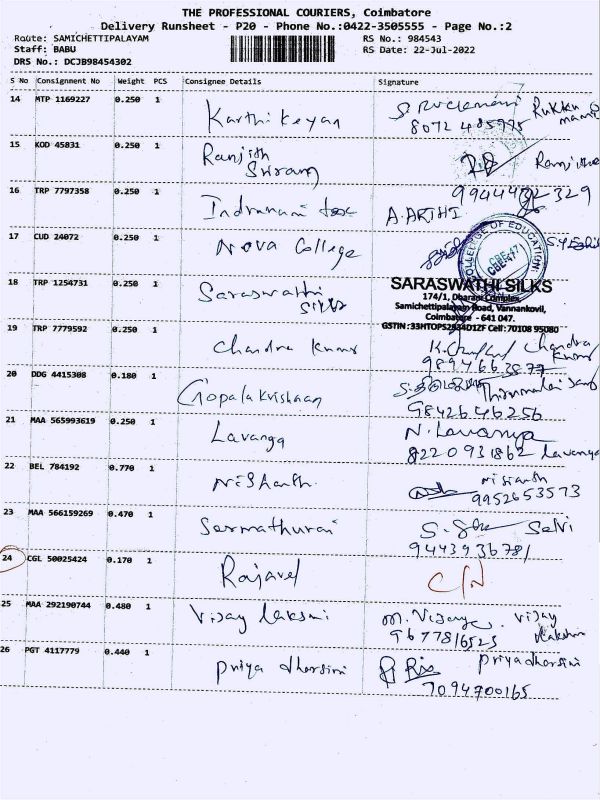 THE PROFESSIONAL COURIERS, Coimbatore
Delivery Runsheet - P20 - Phone No.:0422-3505555 - Page No.:2
Route: SAMICHETTIPALAYAM RS No.: 984543
Staff: BABU RS Date: 22-Jul-2022
DRS No.: DCJB98454302
S No Consignment No Weight PCS Consignee Details Signature
14 MTP 1169227 0.250 1 Karthikeyan Rukku
mami
15 KOD 45831 0.250 1 Ranjith
Sriram
16 TRP 7797358 0.250 1 Indranani A.ARTHI
17 CUD 24072 0.250 1 Nova College
COLLEGE OF EDUCATION
CBE-47
18 TRP 1254731 0.250 1 Saraswathi
Silks
SARASWATHI SILKS
174/1, Dharani Complex,
Samichettipalayam Road, Vannankovil,
Coimbatore - 641 047.
GSTIN :33HTOPS2934D1ZF Cell: 70108 95080
19 TRP 7779592 0.250 1 Chandra Kumar Chandra
Kumar
9894663877
20 DDG 4415308 0.180 1 Gopalakrishnan
9842646256
21 MAA 565993619 0.250 1 Lavanga N.Lavanya
8220931862 Lavanya
22 BEL 784192 0.770 1 Nishanth nisianth
9952653573
23 MAA 566159269 0.470 1 Sermathurai Selvi
9443936781
24 CGL 50025424 0.170 1 Rajavel C/N
25 MAA 292190744 0.480 1 Vijay laksmi Vijay
9677816525 lakshmi
26 PGT 4117779 0.440 1 Priya dharsini Priyadharsini
7094700165